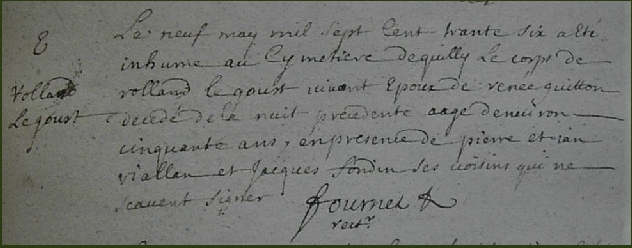 E
Volland
Le goust
Le neuf may mil sept Cent trante six a Eté
inhumé au Cymetiere de quilly Le corps de
rolland le goust vivant Epoux de renée quitton
decedé de la nuit precedente aagé denviron
cinquante ans, en presence de pierre et jan
viallan et Jacques Sondin ses voisins qui ne
scavent signer
fournet
rectr